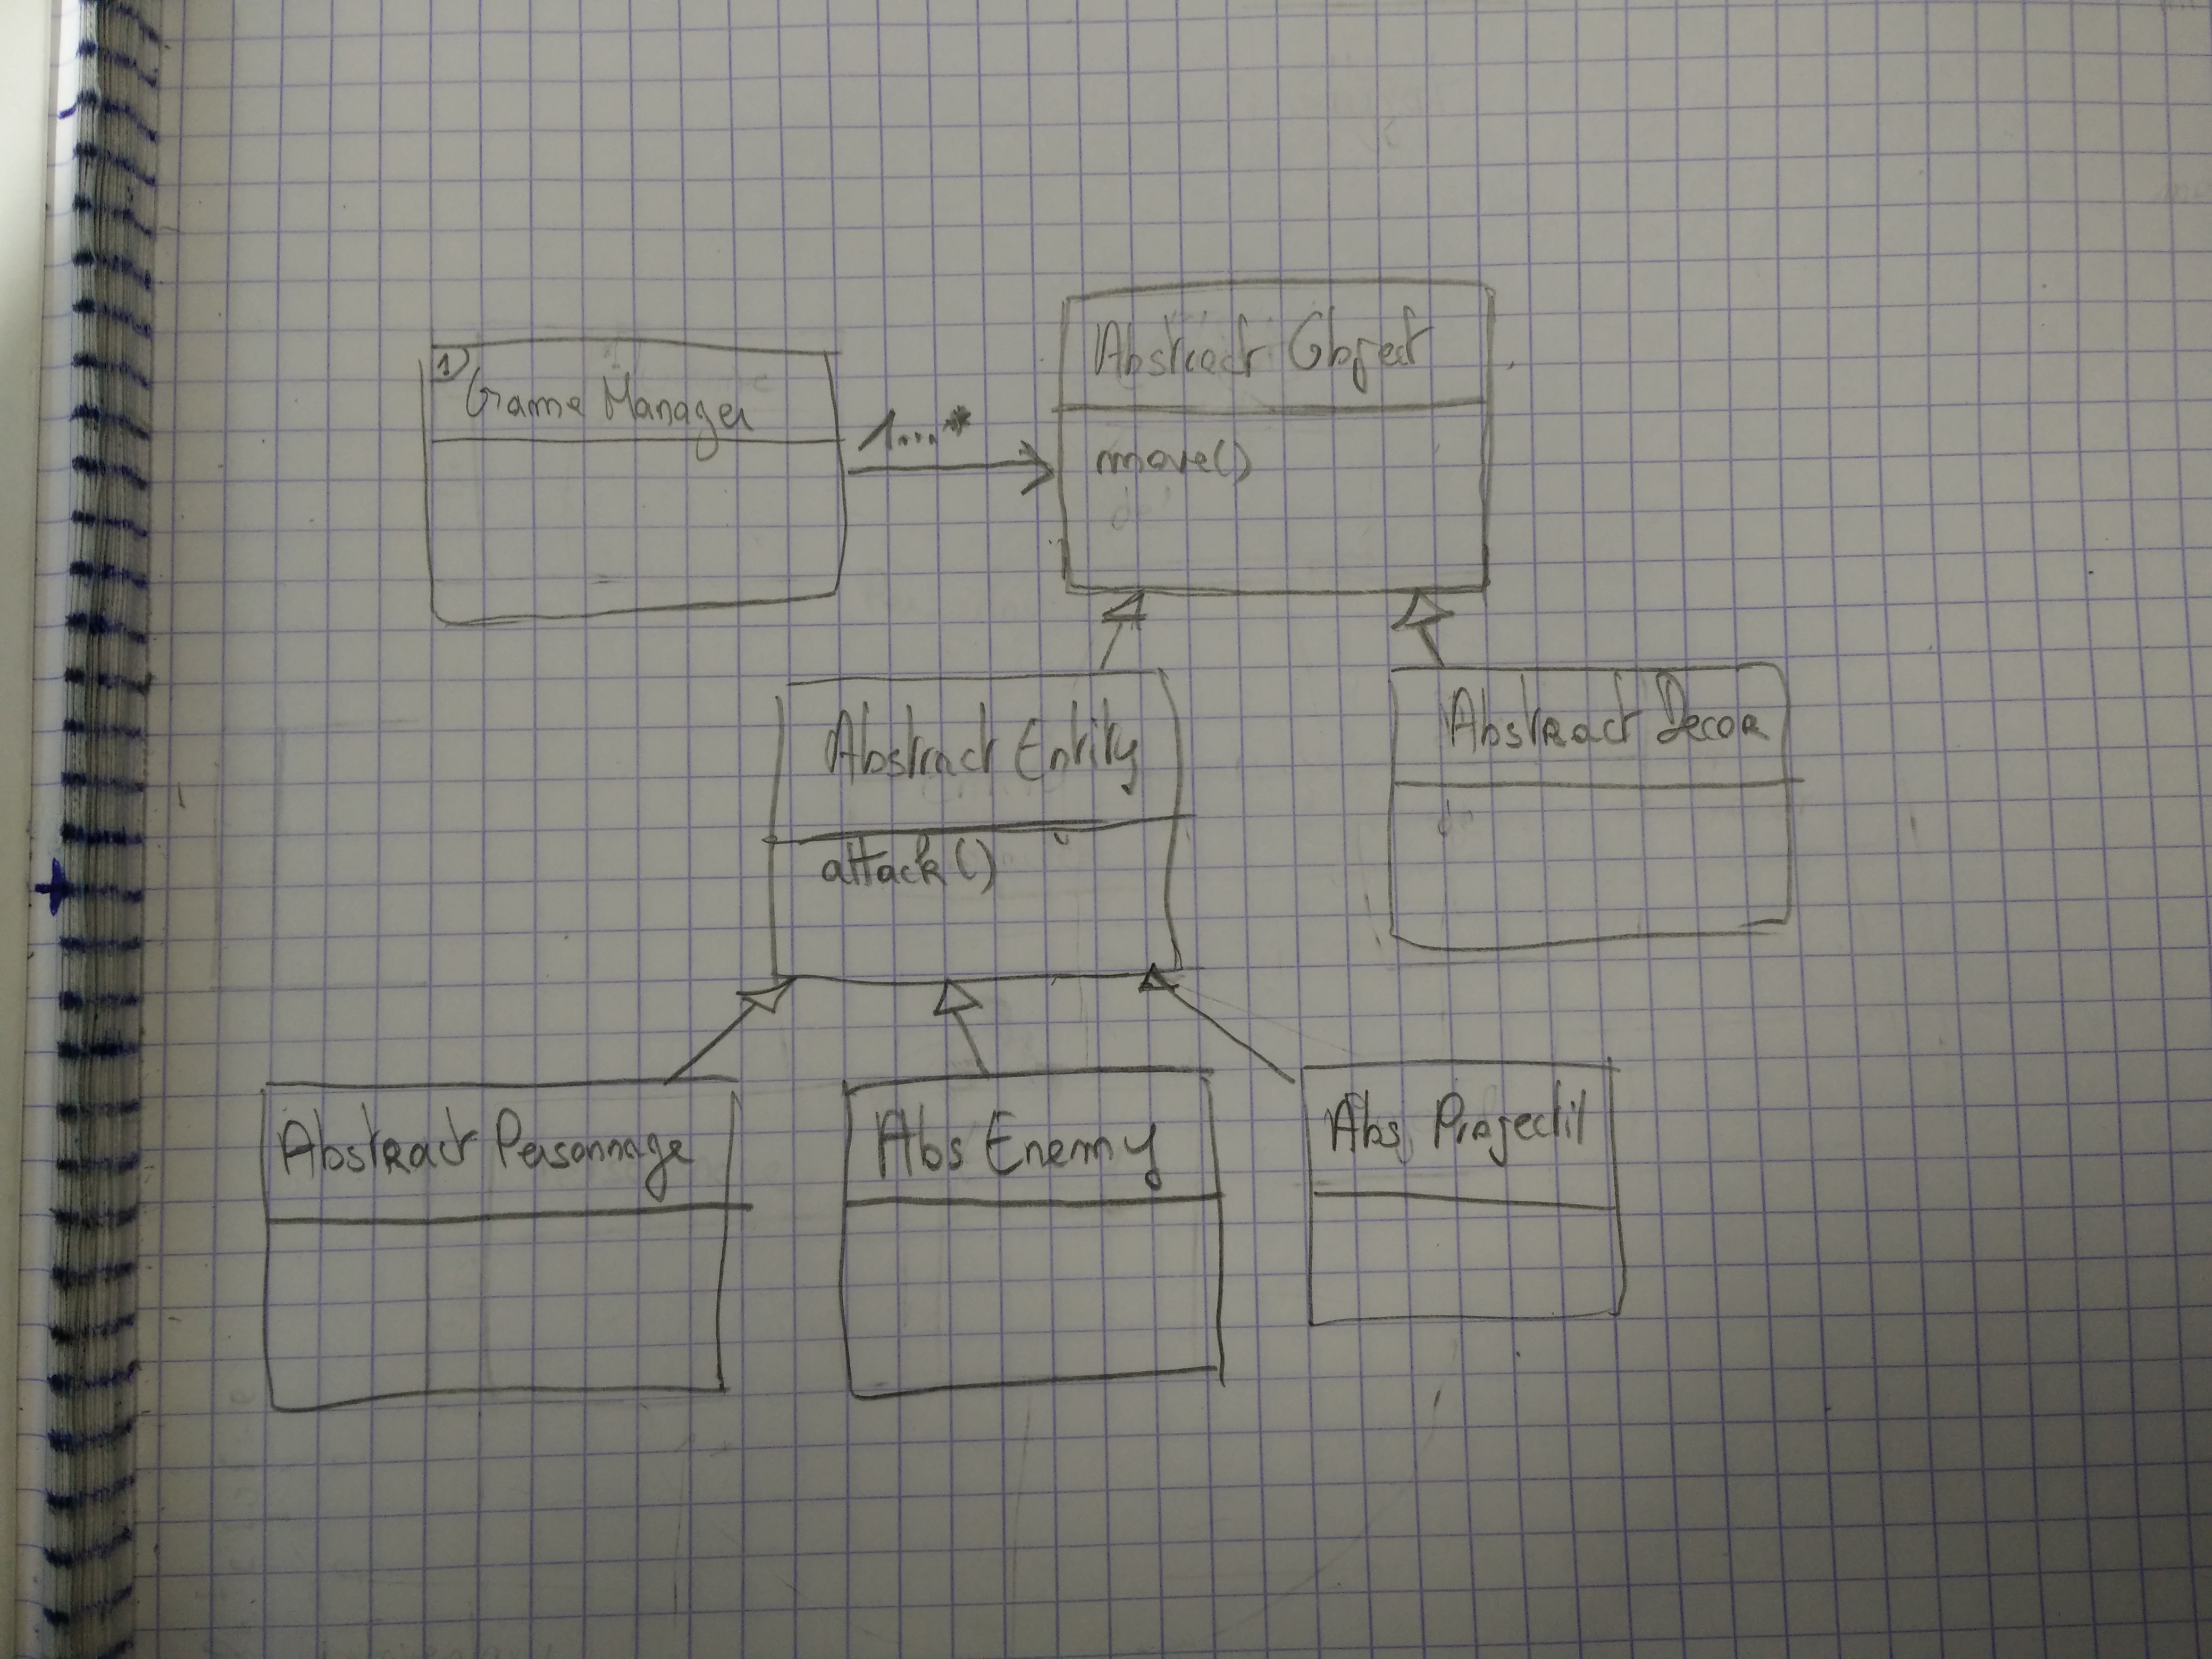 1)
Game Manager
1...*
Abstract Object
move()
Abstract Entity
attack()
Abstract Decor
Abstract Personnage
Abs Enemy
Abs Projectil